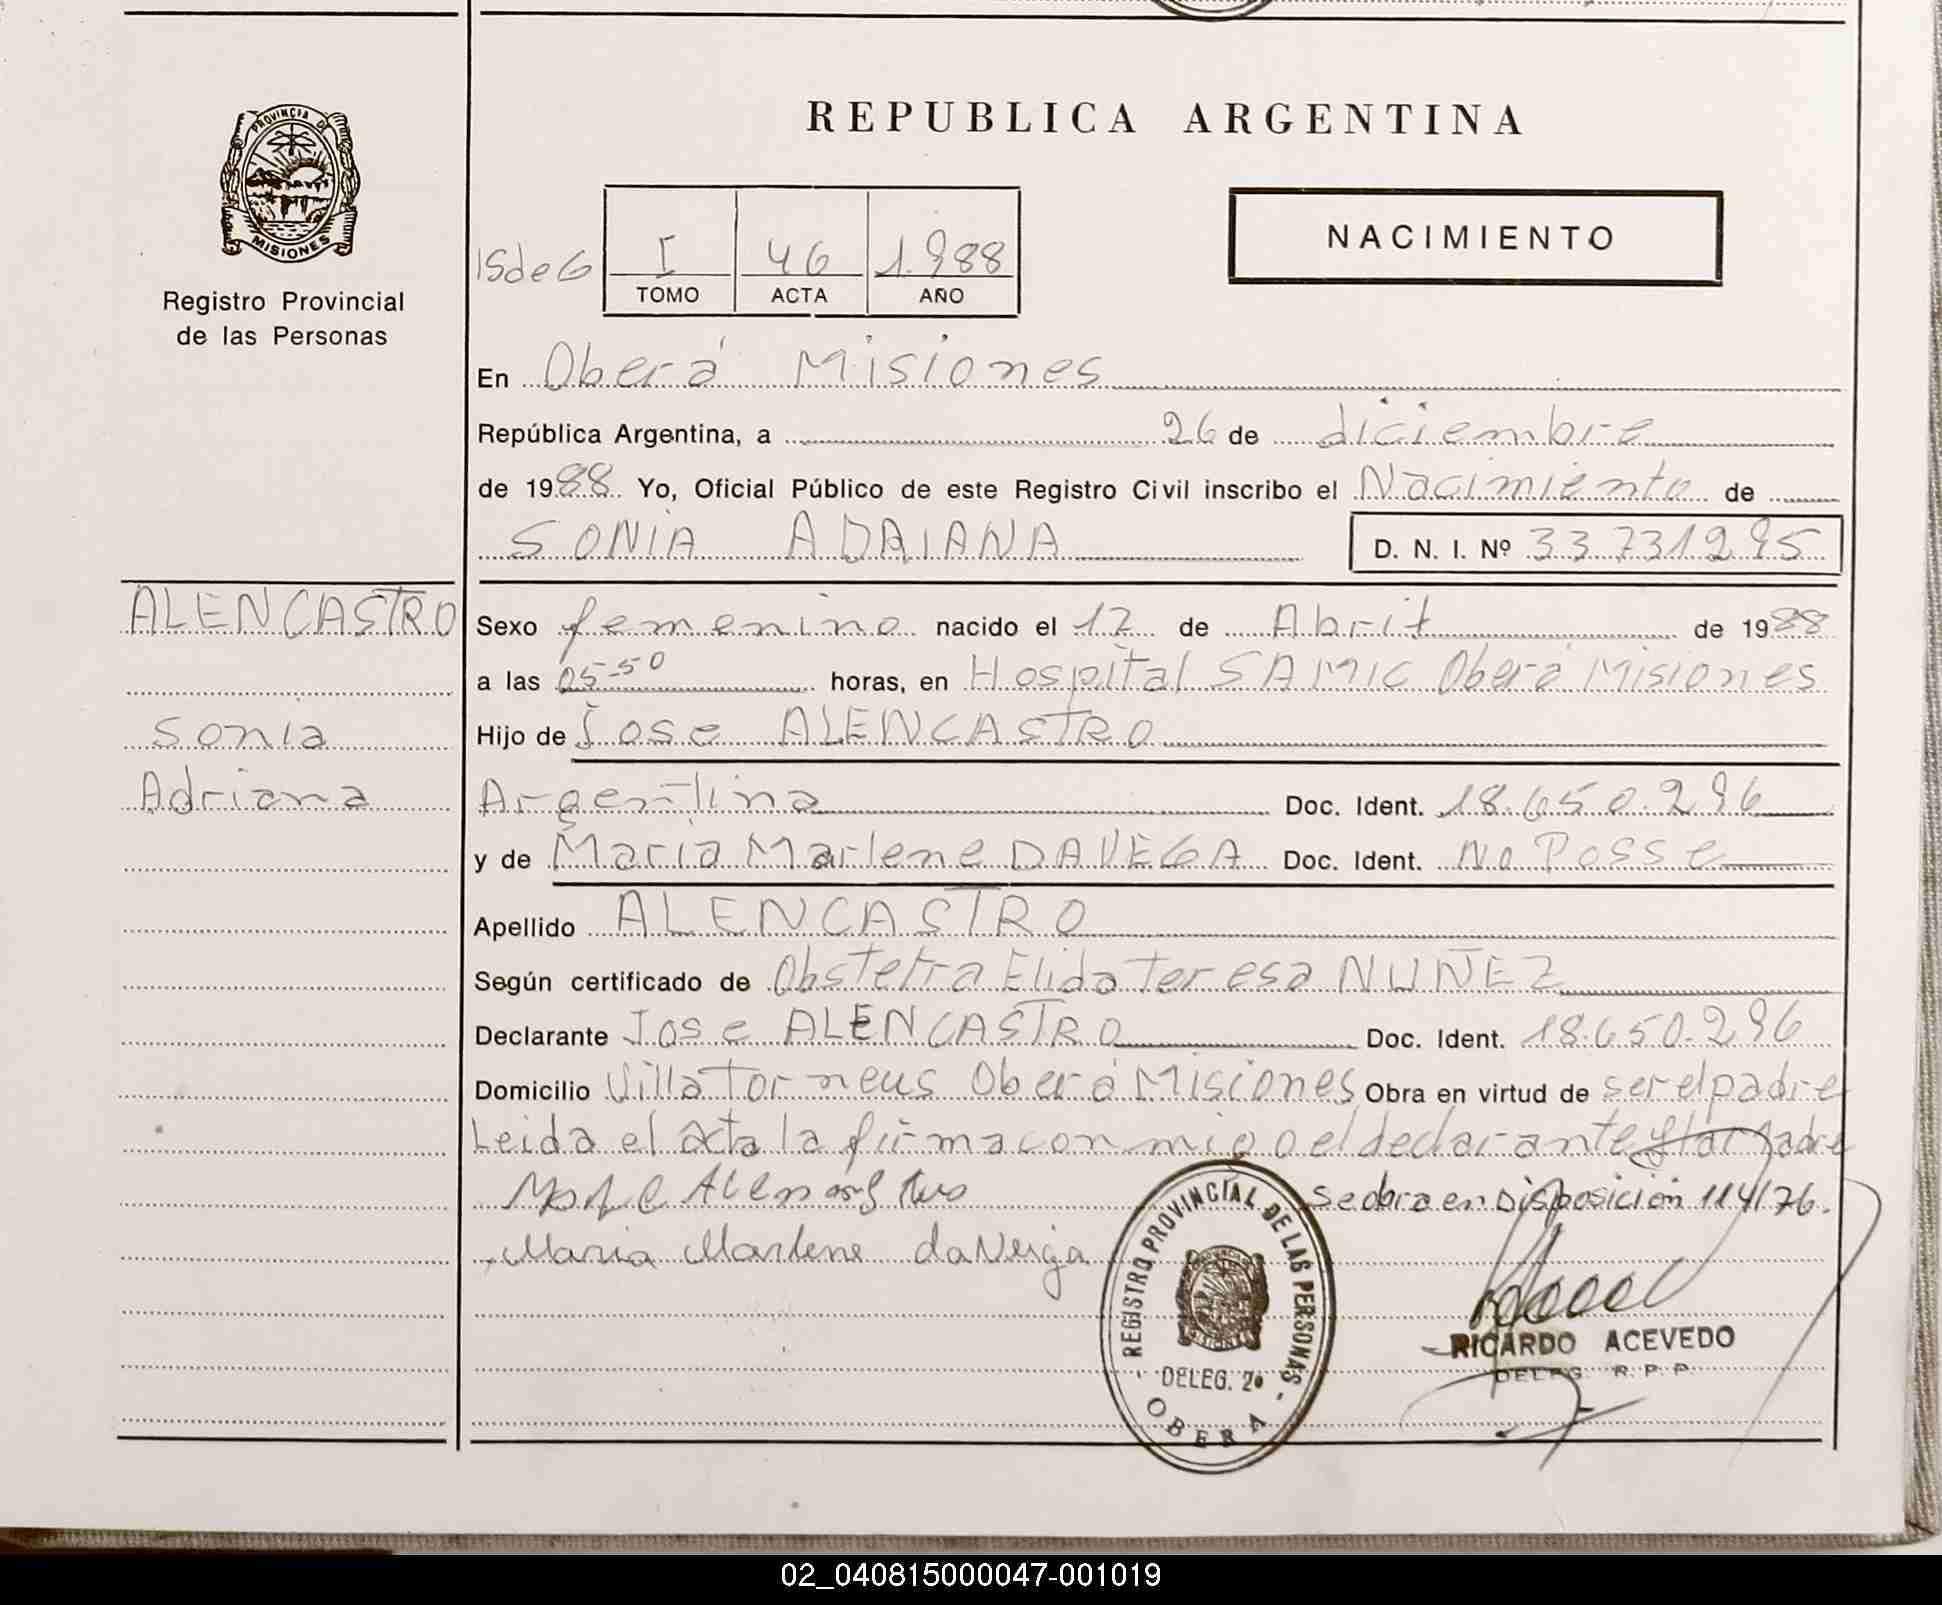 PROVINCIA DE
MISIONES
Registro Provincial
de las Personas
REPUBLICA ARGENTINA
NACIMIENTO
ISdeG
I 46 1.988
TOMO ACTA AÑO
En Oberá Misiones
República Argentina, a 26 de diciembre
de 1988 Yo, Oficial Público de este Registro Civil inscribo el Nacimiento de
SONIA ADRIANA D. N. I. Nº 33.731295
ALENCASTRO
Sonia
Adriana
Sexo femenino nacido el 12 de Abril de 1988
a las 05-50 horas, en Hospital SAMIC Oberá Misiones
Hijo de Jose ALENCASTRO
Argentina Doc. Ident. 18.650.296
y de Maria Marlene DAVEGA Doc. Ident. No Posse
Apellido ALENCASTRO
Según certificado de Obstetra Elida Teresa NUÑEZ
Declarante Jose ALENCASTRO Doc. Ident. 18.650.296
Domicilio Villa Torneus Oberá Misiones Obra en virtud de ser el padre
Leida el acta la firma conmigo el declarante y la madre
se obra en Disposición 114/76.
Maria Marlene da Veiga
REGISTRO PROVINCIAL DE LAS PERSONAS
DELEG. 2ª
OBERA
RICARDO ACEVEDO
DELEG. R. P. P.
02_040815000047-001019